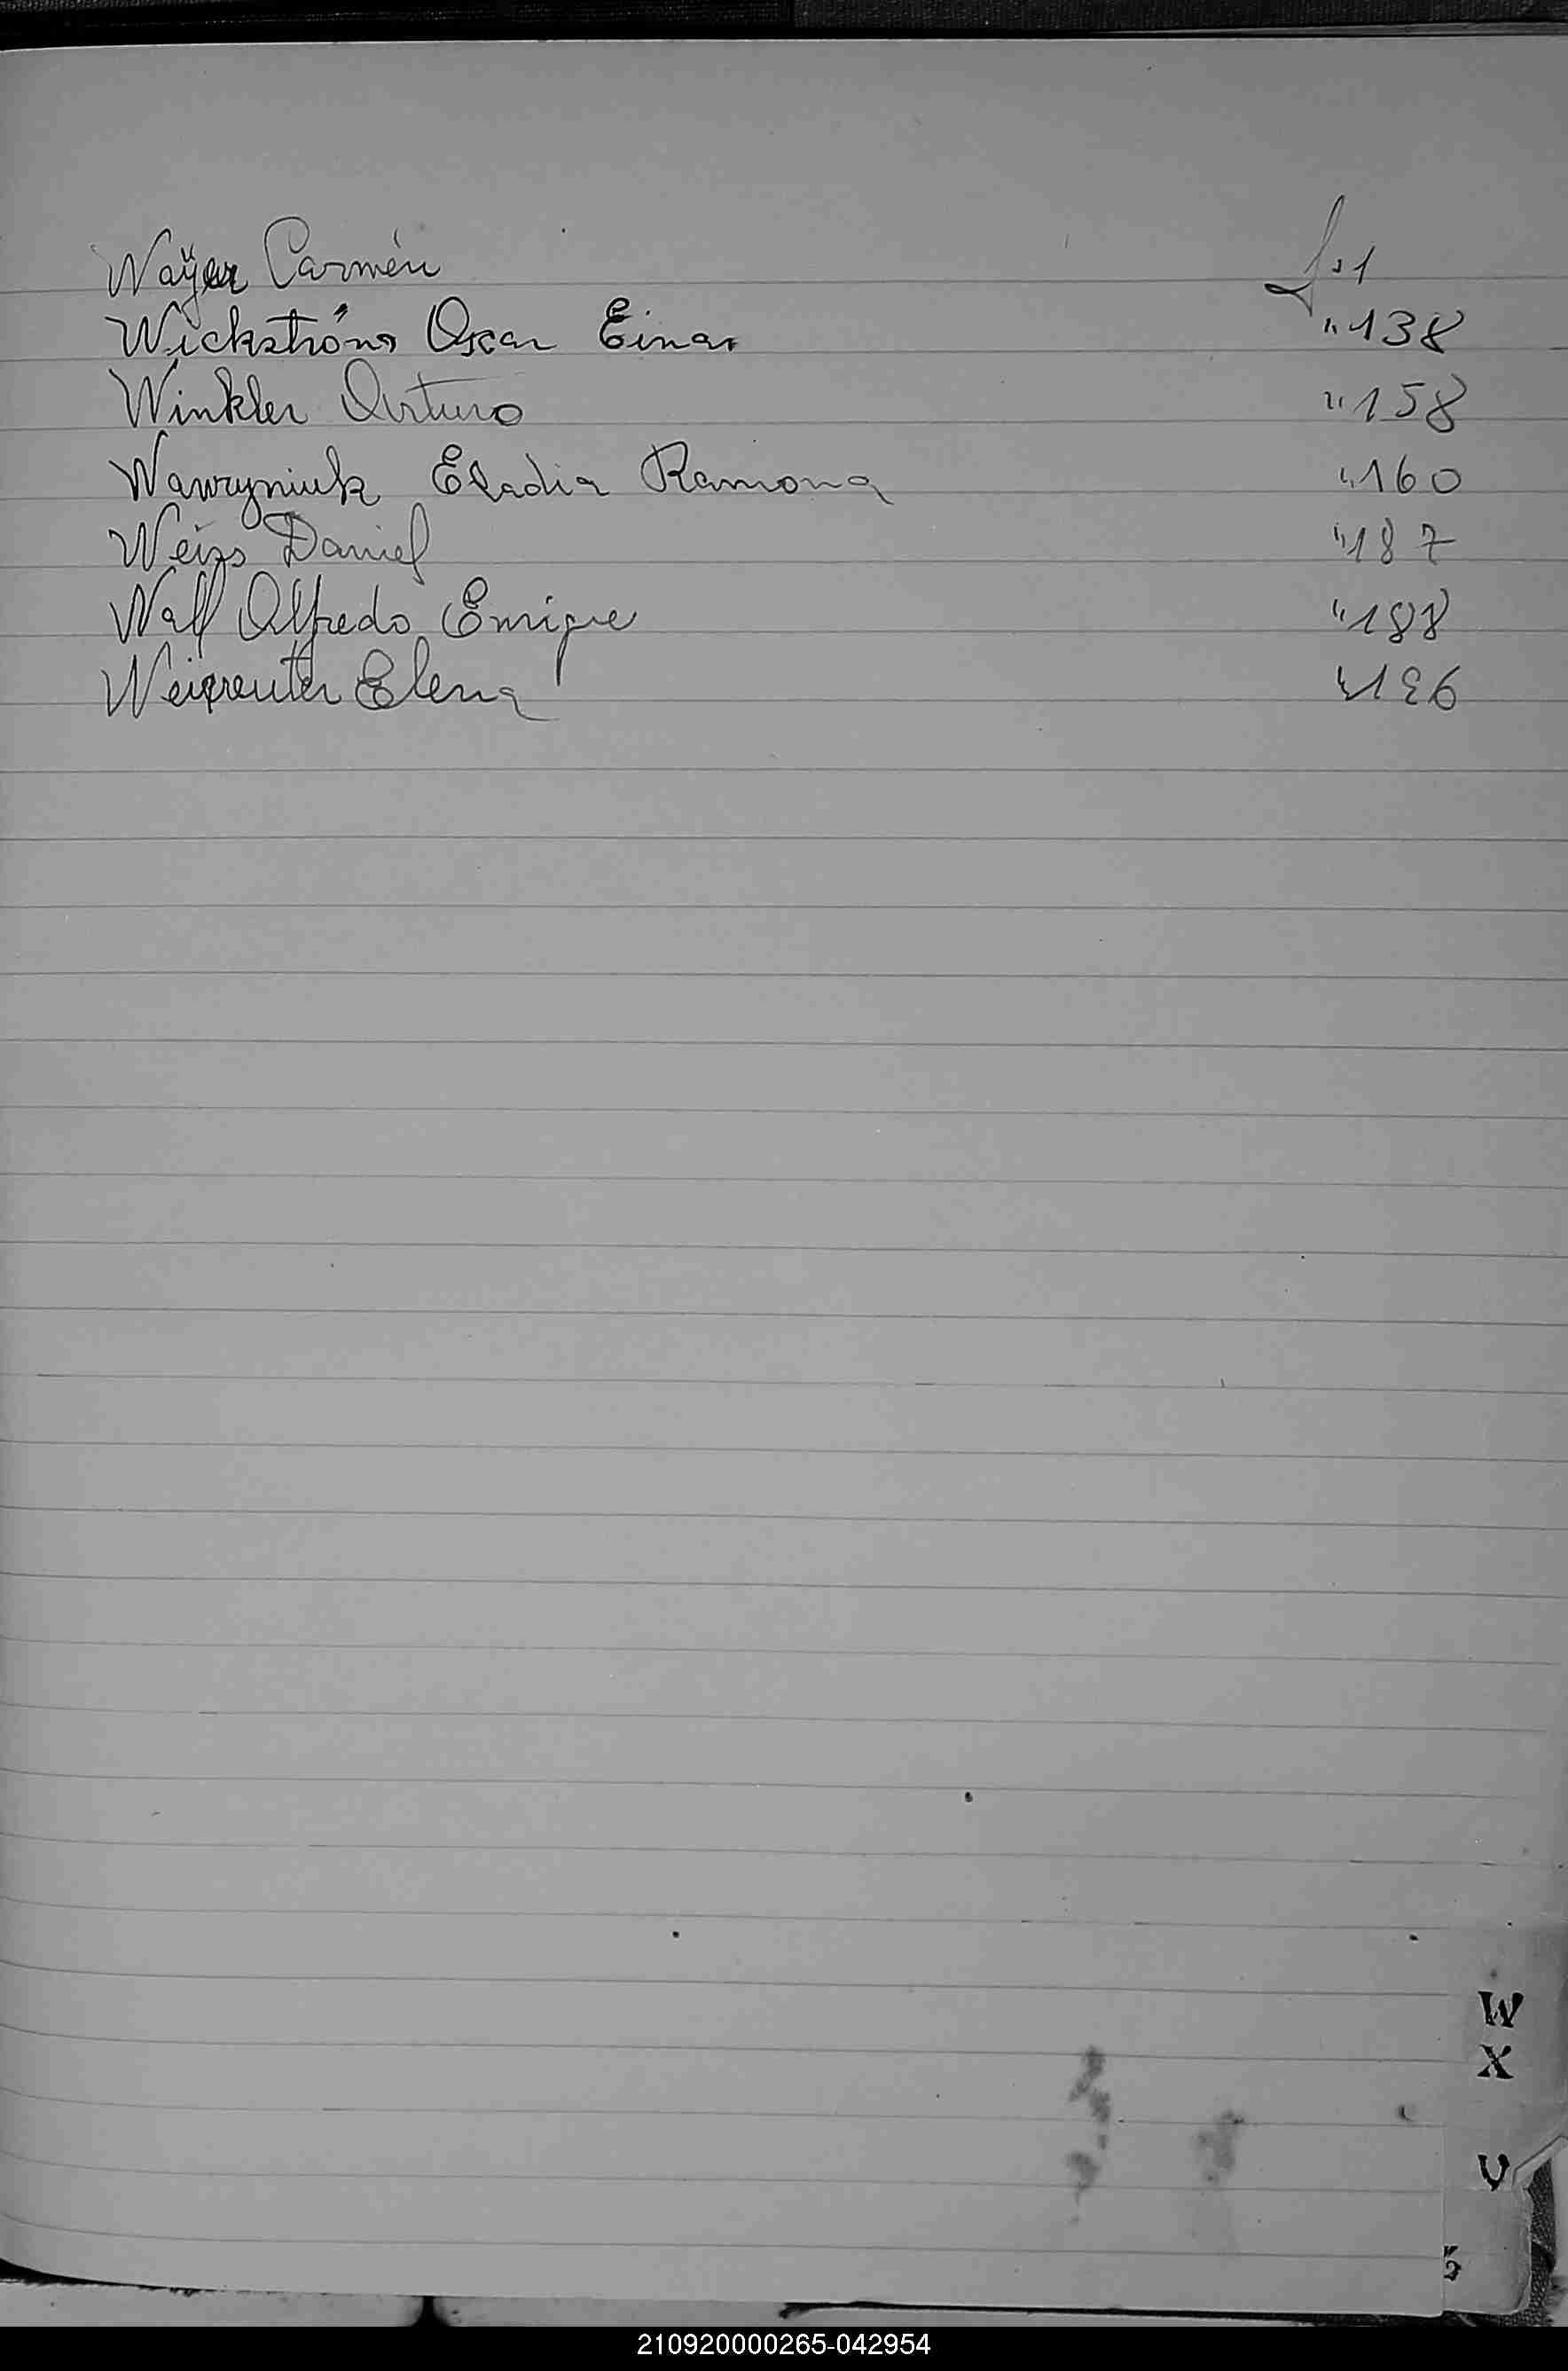 Wayer Carmén fs 1
Wickströms Oscar Einar " 138
Winkler Arturo " 158
Wawryniuk Eladia Ramona " 160
Weiss Daniel " 187
Wall Alfredo Enrique " 188
Elena " 196
W
X
V
210920000265-042954